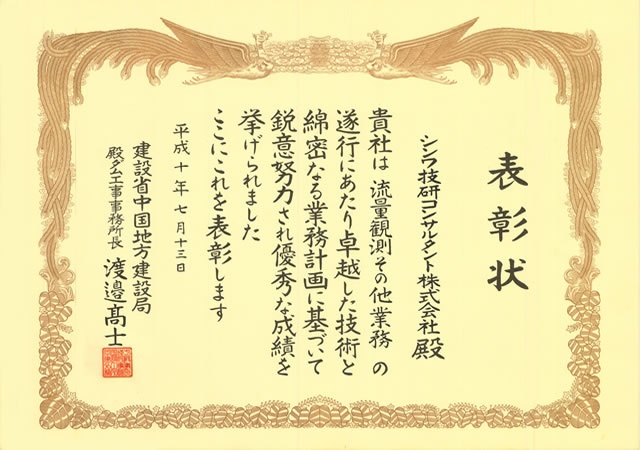 表彰状
シンワ技研コンサルタント株式会社 殿
貴社は 流量観測その他業務 の
遂行にあたり卓越した技術と
綿密なる業務計画に基づいて
鋭意努力され優秀な成績を
挙げられました
ここにこれを表彰します
平成十年七月十三日
建設省中国地方建設局
殿ダム工事事務所長 渡邉髙士